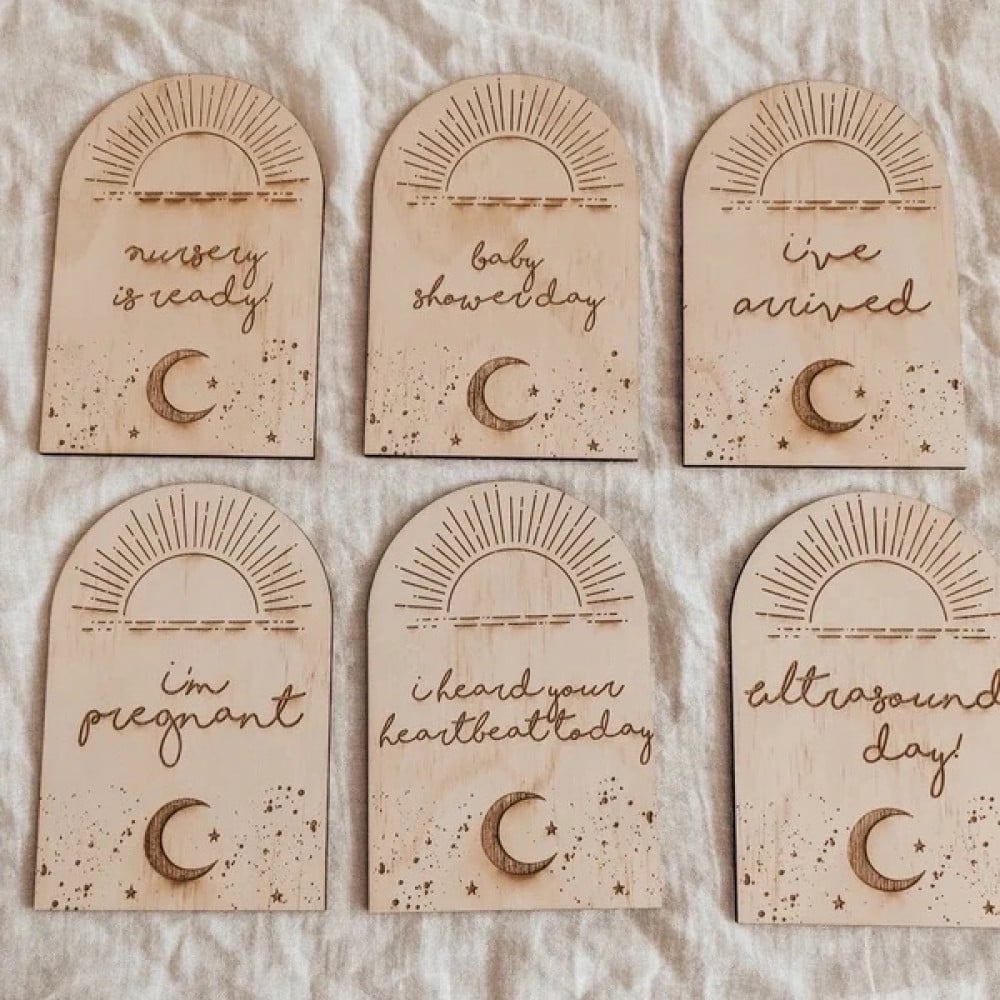 nursery
is ready!
baby
shower day
i've
arrived
i'm
pregnant
i heard your
heartbeat today
ultrasound
day!